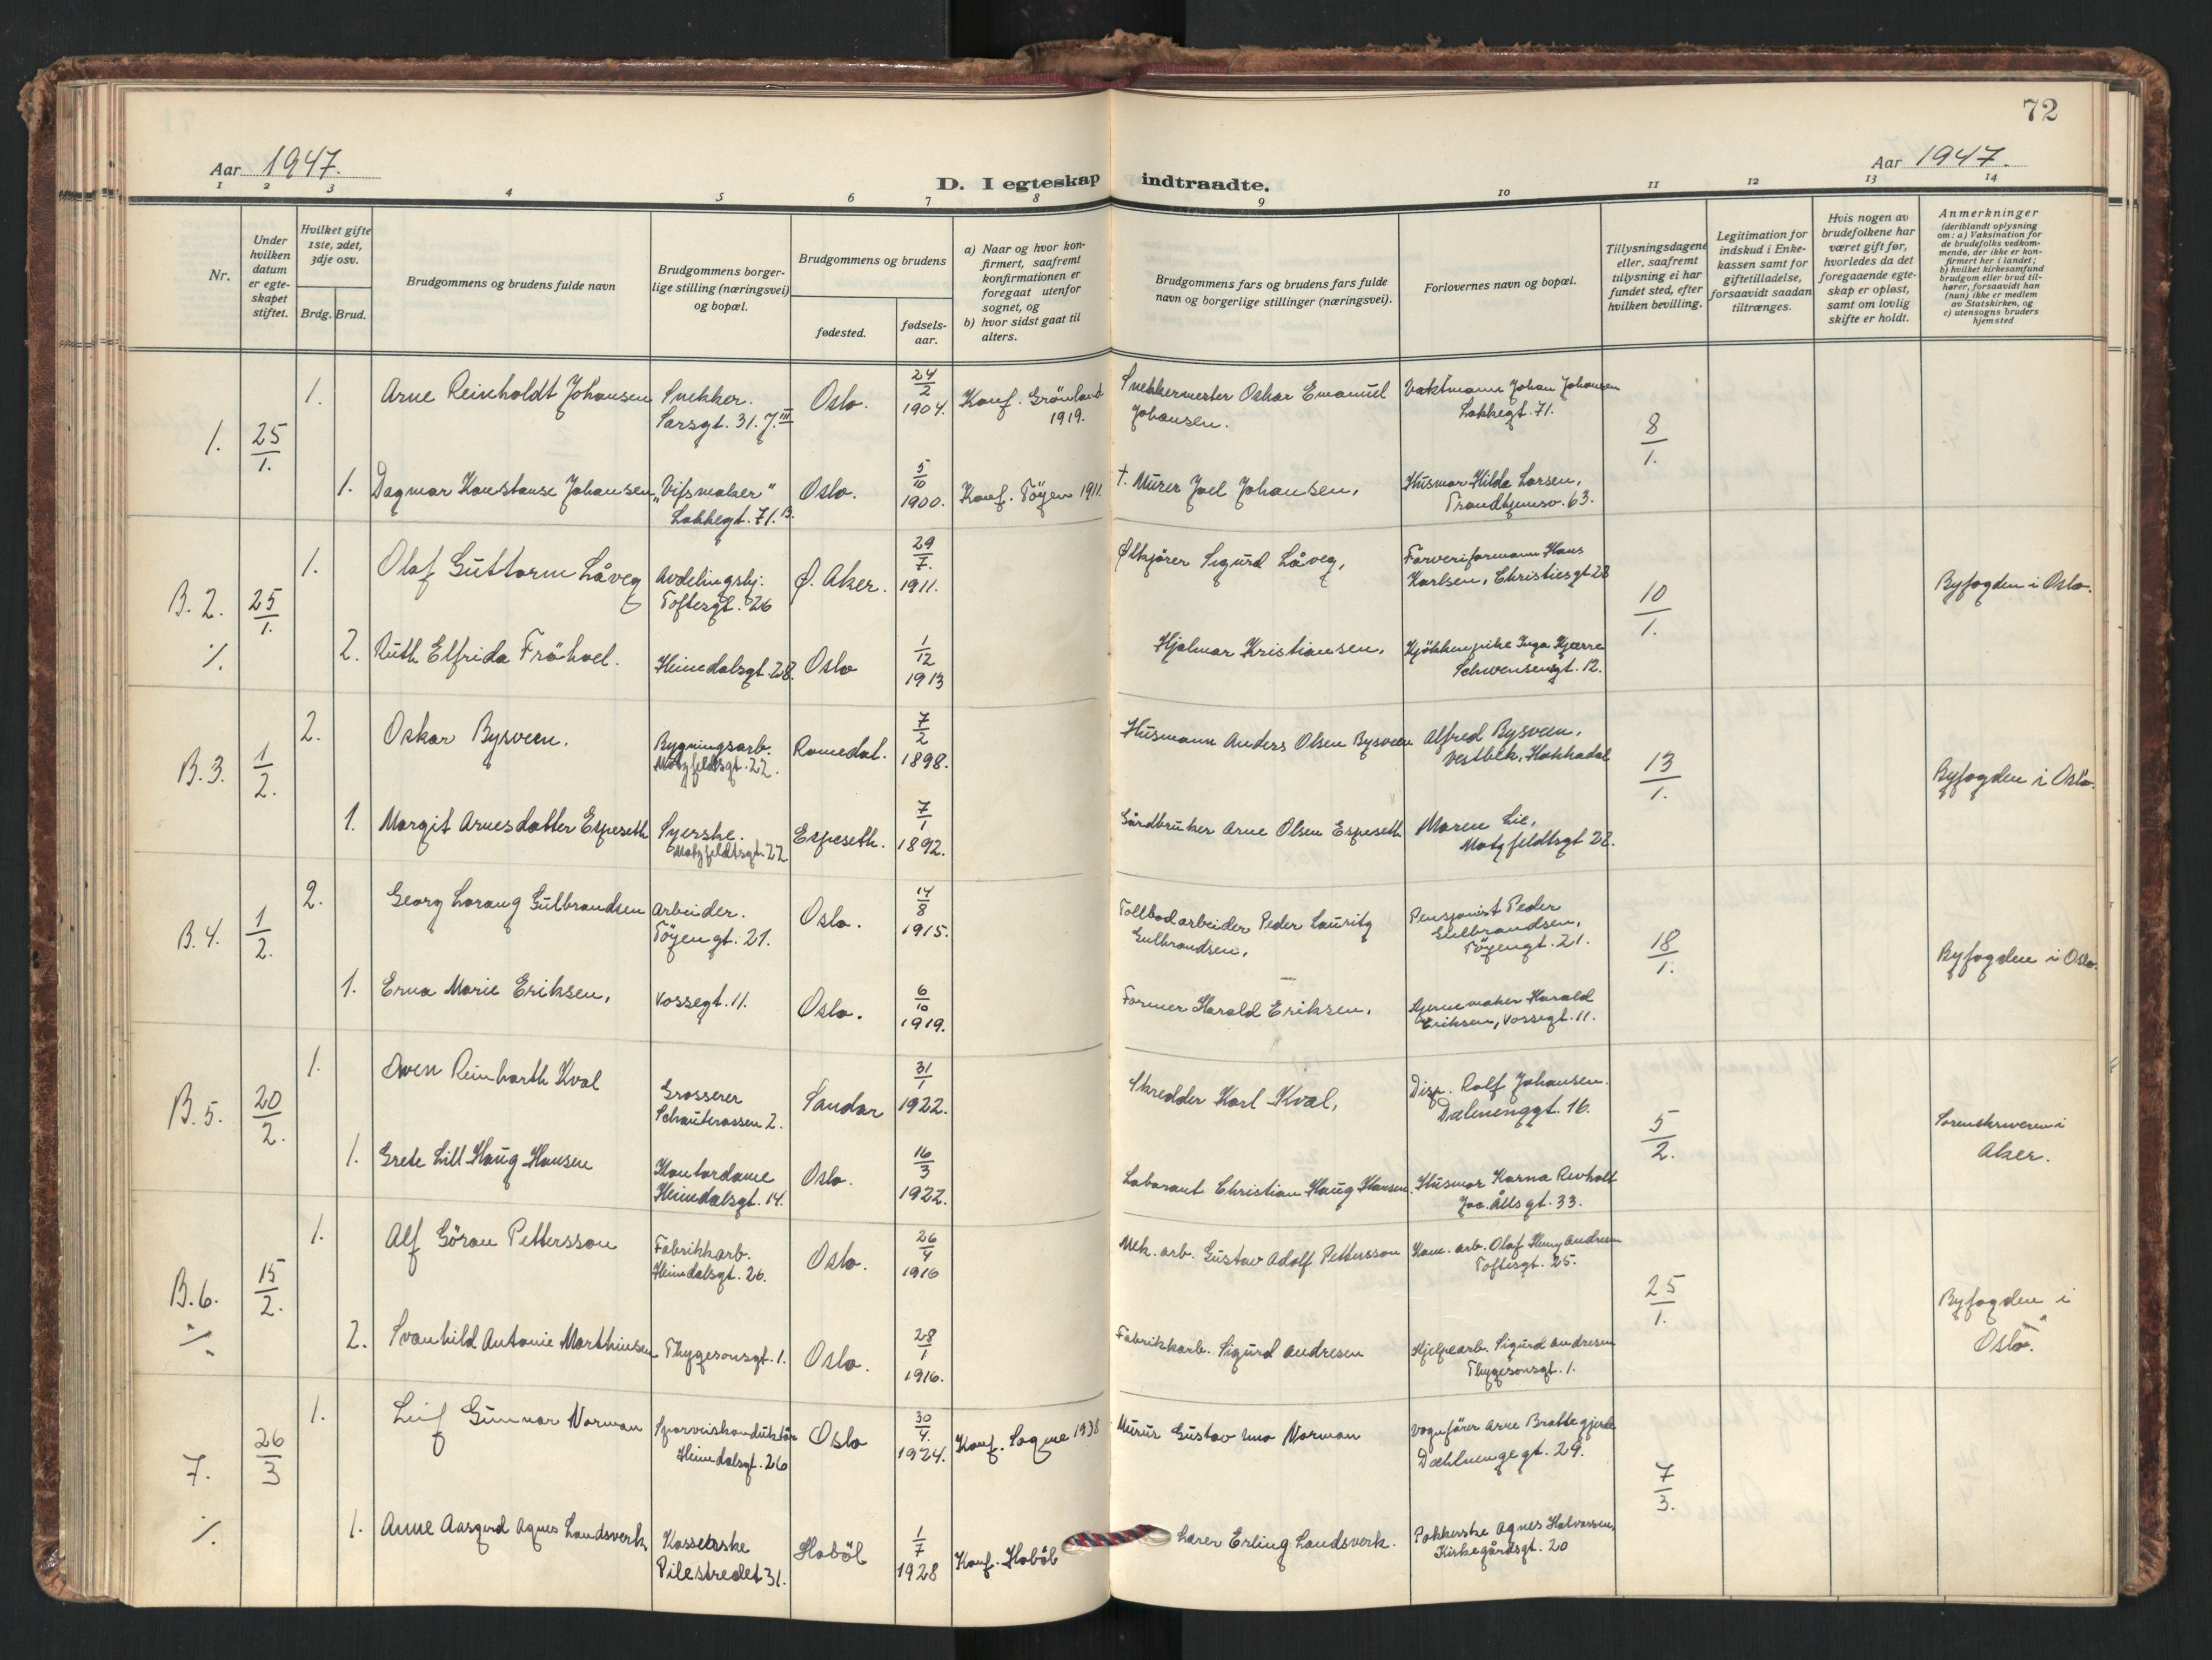 72
Aar 1947.
Aar 1947.
D. I egteskap indtraadte.
1 2 3 4 5 6 7 8 9 10 11 12 13 14
Nr.
Under hvilken datum er egteskapet stiftet.
Hvilket gifte 1ste, 2det, 3dje osv.
Brdg. Brud.
Brudgommens og brudens fulde navn
Brudgommens borgerlige stilling (næringsvei) og bopæl.
Brudgommens og brudens
fødested.
fødselsaar.
a) Naar og hvor konfirmert, saafremt konfirmationen er foregaat utenfor sognet, og
b) hvor sidst gaat til alters.
Brudgommens fars og brudens fars fulde navn og borgerlige stillinger (næringsvei).
Forlovernes navn og bopæl.
Tillysningsdagene eller, saafremt tillysning ei har fundet sted, efter hvilken bevilling.
Legitimation for indskud i Enkekassen samt for giftetilladelse, forsaavidt saadan tiltrænges.
Hvis nogen av brudefolkene har været gift før, hvorledes da det foregaaende egteskap er opløst, samt om lovlig skifte er holdt.
Anmerkninger (deriblandt oplysning om: a) Vaksination for de brudefolks vedkommende, der ikke er konfirmert her i landet; b) hvilket kirkesamfund brudgom eller brud tilhører, forsaavidt han (hun) ikke er medlem av Statskirken, og c) utensogns bruders hjemsted
1. 25/1. 1. Arne Reinholdt Johansen Snekker. Sarsgt. 31. 7.III Oslo. 24/2 1904. Konf. Grönland 1919. Snekkermester Oskar Emanuel Johansen. Vaktmann Johan Johansen Lakkegt. 71. 8/1.
1. Dagmar Konstanse Johansen "Vifsmaker" Lakkegt. 71.B. Oslo. 5/10 1900. Konf. Töyen 1911. † Murer Joel Johansen, Husmor Hilda Larsen, Trondhjemsv. 63.
B. 2. 25/1. 1. Olaf Guttorm Låveg Avdelingsbj. Toftesgt. 26 Ø. Aker. 29/7. 1911. Ølkjörer Sigurd Låveg, Farveriformann Hans Karlsen, Christiesgt 28 10/1. Byfogden i Oslo.
·/. 2. Ruth Elfrida Fröhoel. Heimdalsgt. 28. Oslo 1/12 1913 Hjalmar Kristiansen, Kjökkenpike Inga Kjærre Schwensensgt. 12.
B. 3. 1/2. 2. Oskar Bysveen. Bygningsarb. Motzfeldtsgt. 22. Romedal. 7/2 1898. Husmann Anders Olsen Bysveen Alfred Bysveen, Vestbek, Hakkadal 13/1. Byfogden i Oslo.
1. Margit Arnesdatter Espeseth Syerske. Motzfeldtsgt. 22 Espeseth. 7/1 1892. Gårdbruker Arne Olsen Espeseth Maren Lie, Motzfeldtsgt 22.
B. 4. 1/2. 2. Georg Lorang Gulbrandsen Arbeider. Töyengt. 21. Oslo. 14/8 1915. Tollbodarbeider Peder Lauritz Gulbrandsen, Pensjonist Peder Gulbrandsen, Töyengt. 21. 18/1. Byfogden i Oslo.
1. Erna Marie Eriksen, Vossegt. 11. Oslo. 6/10 1919. Former Harald Eriksen, Kjernemaker Harald Eriksen, Vossegt. 11.
B. 5. 20/2. 1. Owen Reinharth Kval Grosserer Schauterassen 2. Sandar 31/1 1922. Skredder Karl Kval, Disp. Rolf Johansen. Dælenenggt. 16. 5/2. Sorenskriveren i Aker.
1. Grete Lill Haug Hansen Kontordame Heimdalsgt. 14. Oslo. 16/3 1922. Laborant Christian Haug Hansen. Husmor Karna Revholt Jac. Ålls gt. 33.
B. 6. 15/2. 1. Alf Göran Pettersson Fabrikkarb. Heimdalsgt. 26. Oslo. 26/4 1916 Mek. arb. Gustav Adolf Pettersson Kom. arb. Olaf Henry Andresen Toftesgt. 25. 25/1. Byfogden i Oslo.
·/. 2. Svanhild Antonie Marthinsen Thygesonsgt. 1. Oslo. 28/1 1916. Fabrikkarb. Sigurd Andresen Hjelpearb. Sigurd Andresen Thygesonsgt. 1.
7. 26/3 1. Leif Gunnar Norman Sporveiskonduktör Heimdalsgt. 26 Oslo 30/4. 1924. Konf. Sagene 1938 Murer Gustav Uno Norman Vognförer Arne Brattegjerde Dæhlenengegt. 29. 7/3.
·/. 1. Anne Aasgerd Agnes Landsverk Kasserske Pilestredet 31. Hobøl 1/7 1928 Konf. Hobøl Lærer Erling Landsverk. Pakkerske Agnes Halvorsen, Kirkegårdsgt. 20